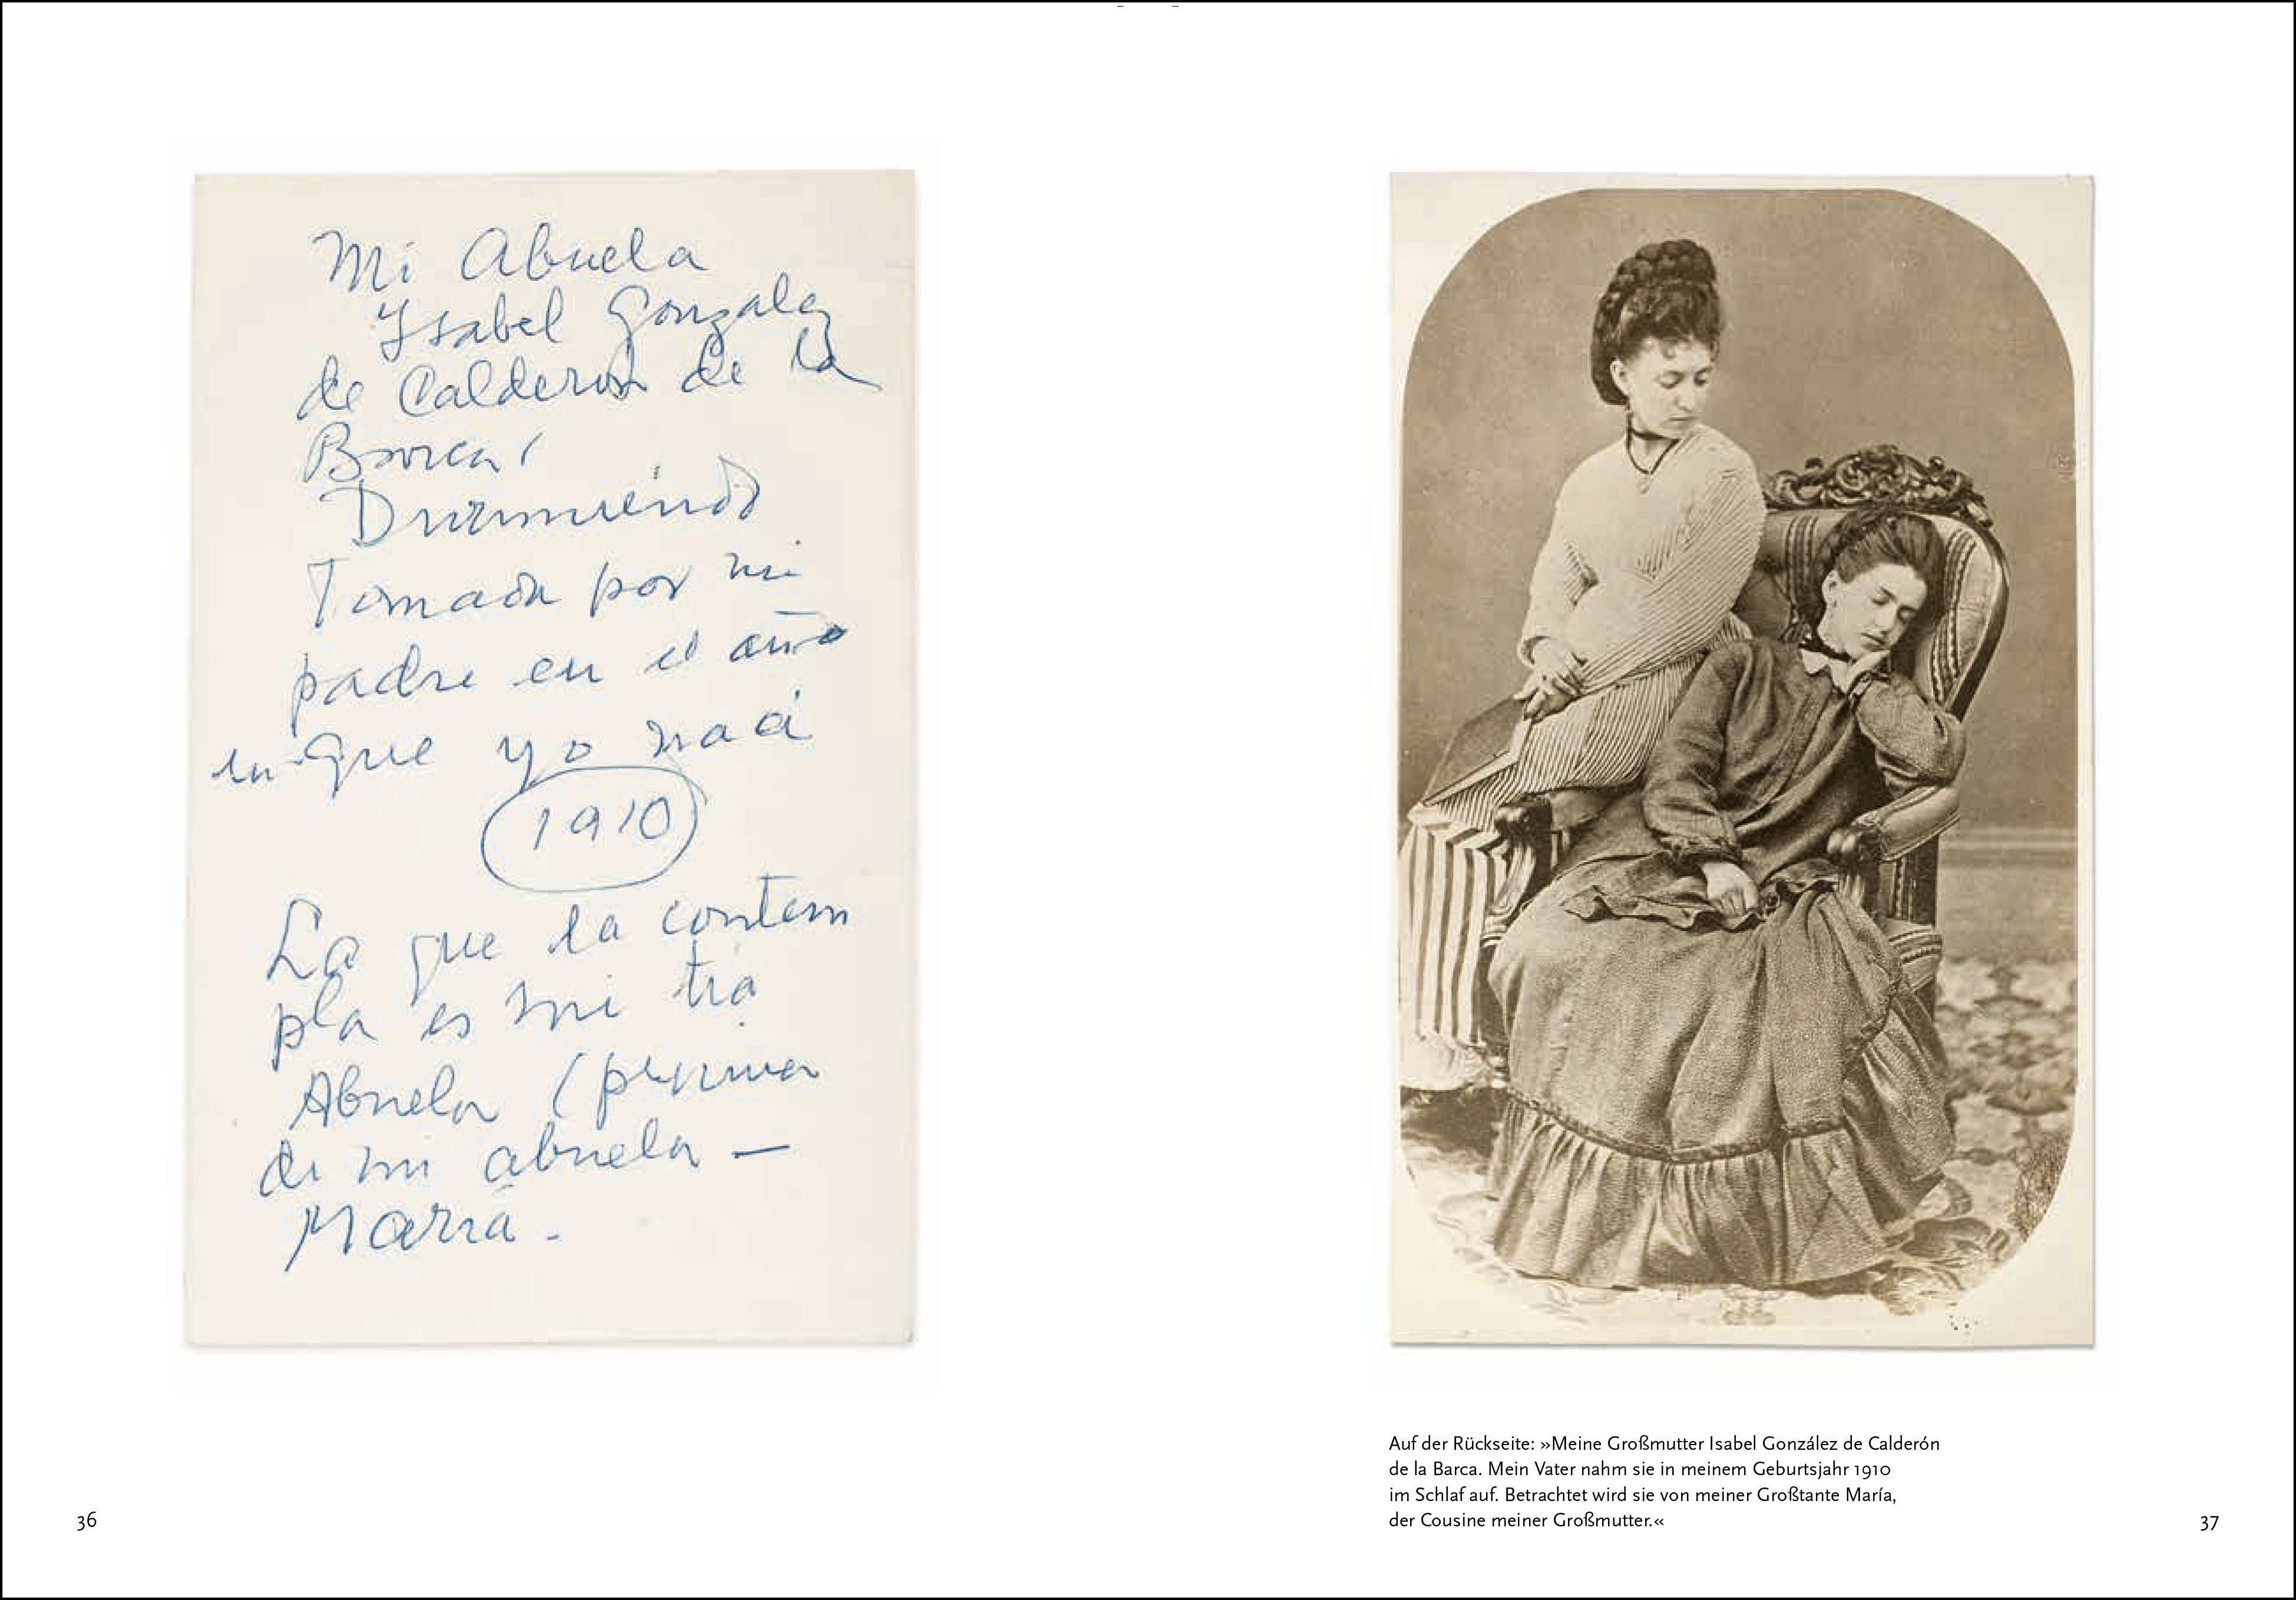 Mi Abuela
Ysabel Gonzalez
de Calderon de la
Barca,
Durmiendo
Tomada por mi
padre en el año
en que yo nací
1910
La que la contem
pla es mi tia
Abuela (prima
de mi abuela —
Maria -
36
Auf der Rückseite: »Meine Großmutter Isabel González de Calderón
de la Barca. Mein Vater nahm sie in meinem Geburtsjahr 1910
im Schlaf auf. Betrachtet wird sie von meiner Großtante María,
der Cousine meiner Großmutter.«
37